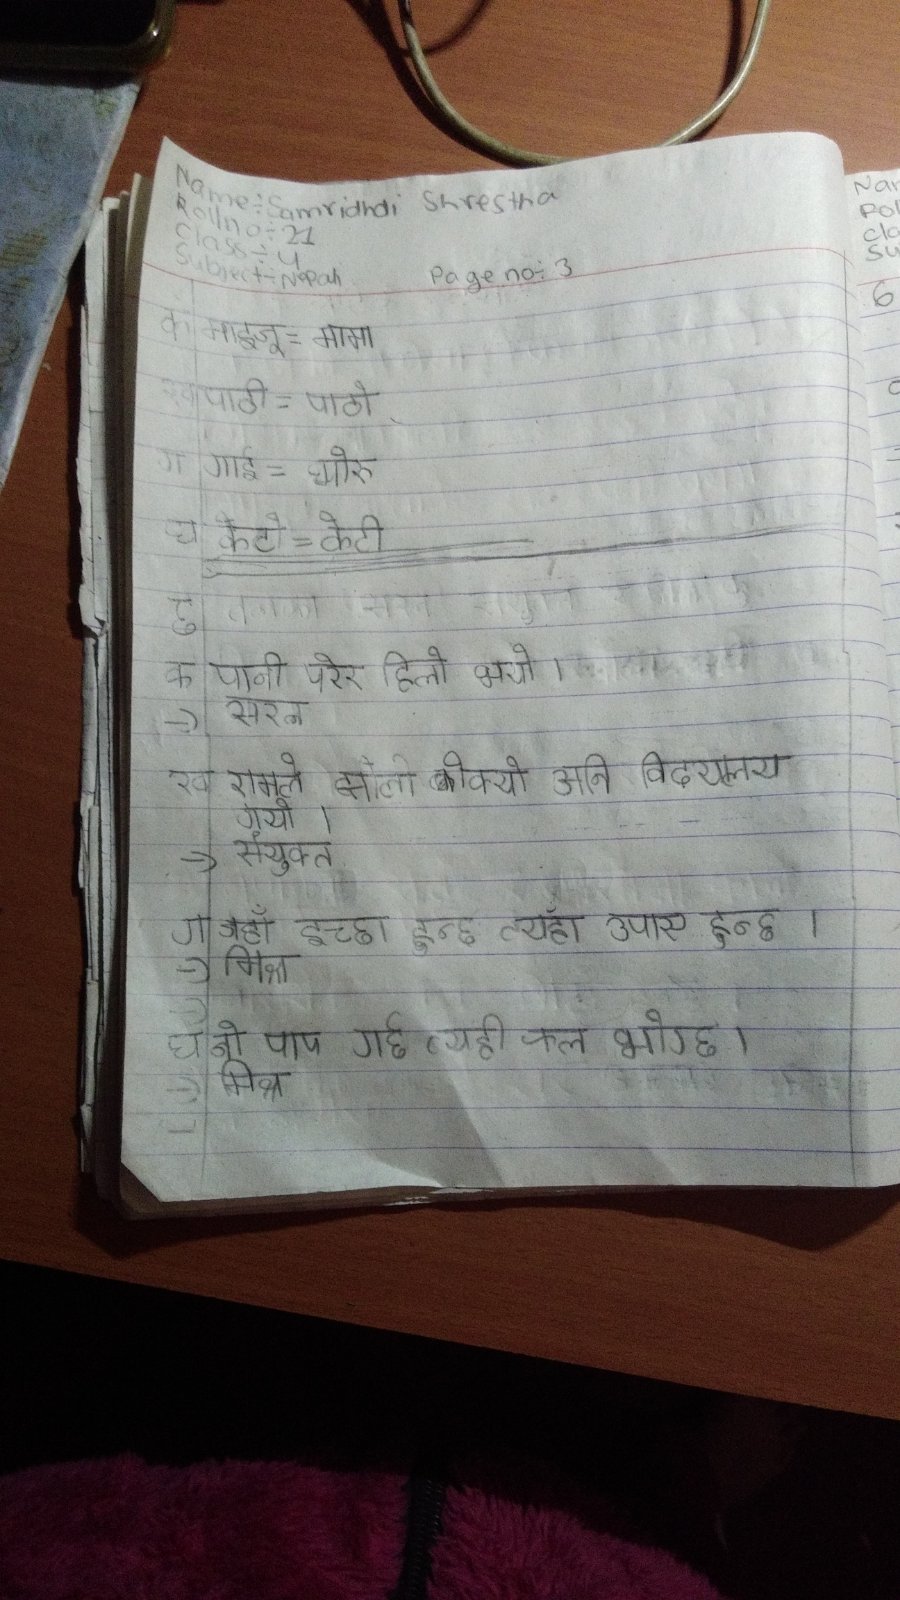 Name:- Samridhdi Shrestha
Roll no:- 21
Class:- 4
Subject:- Nepali Page no:- 3
क माइजू = मामा
ख पाठी = पाठो
ग गाई = भोरु
घ केटो = केटी
क पानी परेर हिलो भयो ।
→ सरल
ख रामले झोला बोक्यो अनि विदयालय
गयो ।
→ संयुक्त
ग जहाँ इच्छा हुन्छ त्यहाँ उपाए हुन्छ ।
→ मिश्र
घ जो पाप गर्छ त्यही फल भोग्छ ।
→ मिश्र
6